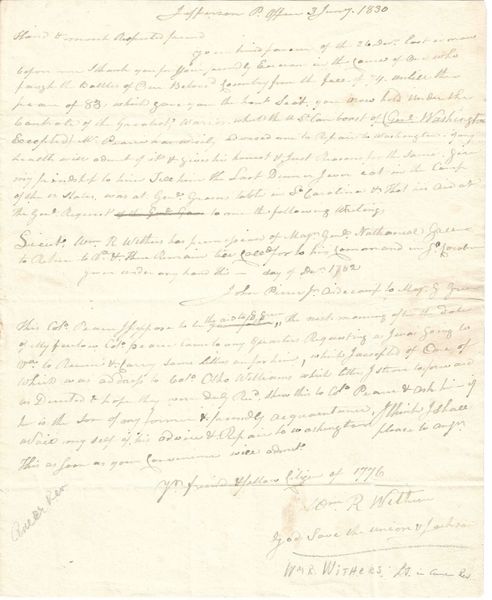 Jefferson P. Office 3 Jany. 1830
Hond & most Respected friend
your kind favour of the 26 Dec. last is now
before me I thank you for your friendly Exersion in the Cause of one who
faught the Battles of Our Beloved Country from the fall of 74 untill the
year of 83, which gave you the honl. Seat, you now hold under the
Controle of the Greatest Warier, what the U St. Can boost of (Genl. Washington
Excepted) Mr. has wisely advised me to Repair to Washington if my
health will admit of it & Gives his honest & Just Reasons for the Same. Give
my friendship to him Tell him the Last Dinner I ever eat in the Camp
of the 12 States, was at Genl. Greens table in So. Carolina & that his Aid at
the Genl. Request to me the following Writing
Lieut. Wm. R Withers has permission of Majr. Genl. Nathanael Greene
to Return to Va. & there Remain till Called for to his Command in So. Carolina
given under my hand this — day of Dec. 1782
John Jr. Aidecamp to Maj. G. Green
This Col. I suppose to be the next morning after the date
of my furlow Col. came to my Quarters Requesting as I was Going to
Va. to Receive & Carry some letters for him, which I accepted of One of
which was address to Col. Otho Williams which letter I
as Directed & hope they were duly Recd. show this to Col. & ask him if
he is the son of my former & friendly acquaintance, I think I shall
avail my self of his advice & Repair to Washington please to answr.
This as soon as your Convenience will admit.
Yr. friend & fellow Citizn of 1776
Wm R Withers
God Save the union & Jackson
Wm R. WITHERS. Lt. in Amer Rev.
Amer Rev